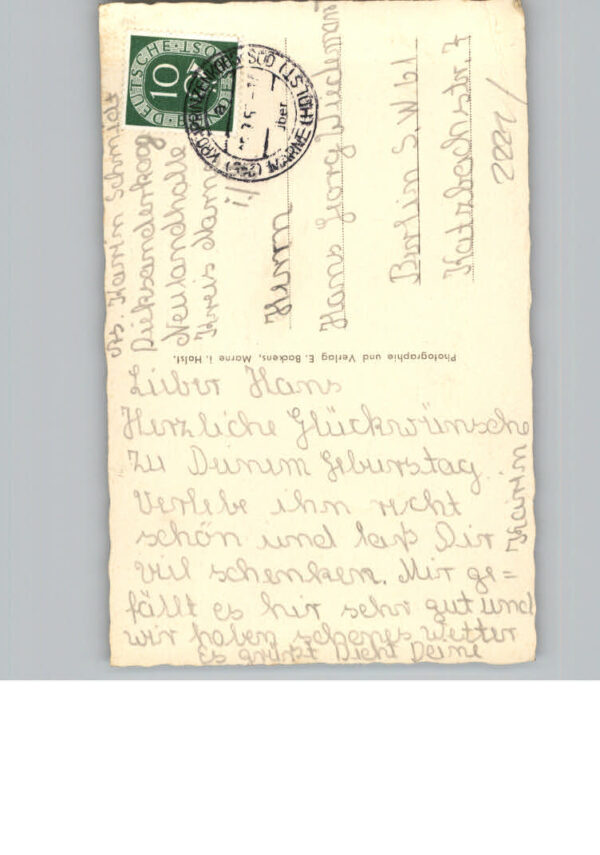 DEUTSCHE POST
10
KRONPRINZENKOOG SÜD
über MARNE (HOLST)
Abs. Karin Schmidt
Dieksanderkoog
Neulandhalle
Kreis Marne
i./
Herrn
Hans Georg Wiedemann
Berlin S.W 61
Katzbachstr. 7
2221/
Photographie und Verlag E. Backens, Marne i. Holst.
Lieber Hans
Herzliche Glückwünsche
zu Deinem Geburstag.
Verlebe ihn recht
schön und laß Dir
viel schenken. Mir ge=
fällt es hir sehr gut und
wir haben schenes Wetter
Es grüßt Dich Deine
Karin